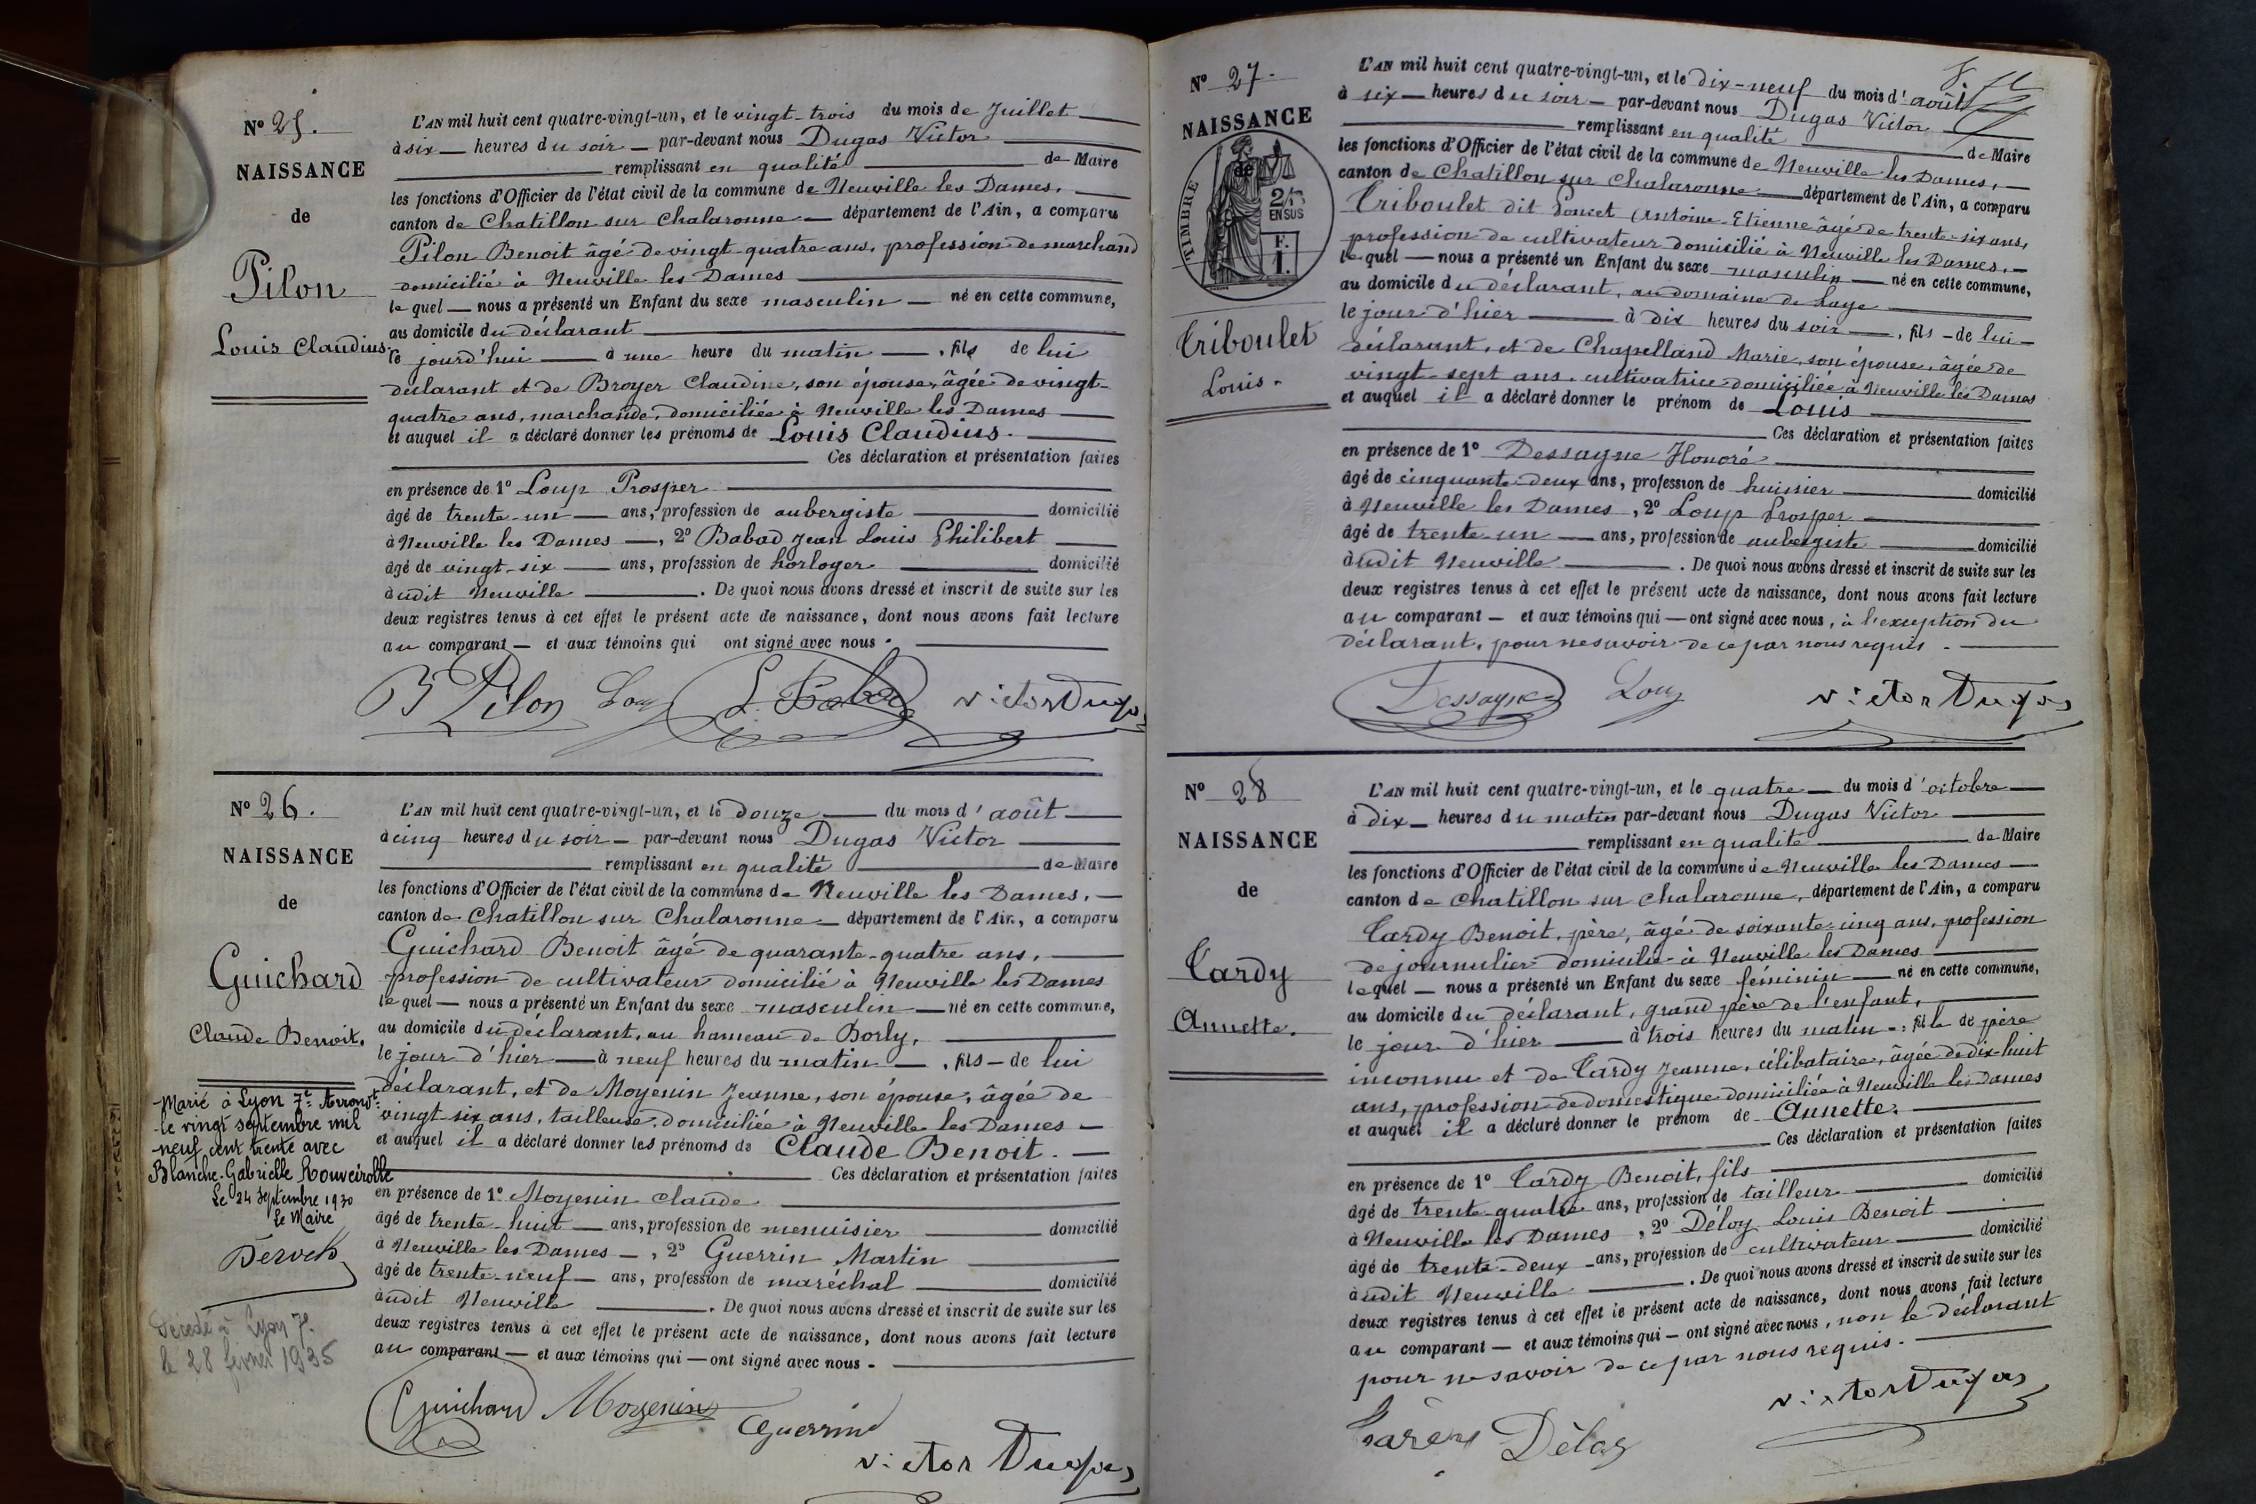 N° 25.
NAISSANCE
de
Pilon
Louis Claudius.
L'AN mil huit cent quatre-vingt-un, et le vingt-trois du mois de Juillet
à six heures du soir par-devant nous Dugas Victor
remplissant en qualité de Maire
les fonctions d'Officier de l'état civil de la commune de Neuville les Dames,
canton de Chatillon sur Chalaronne département de l'Ain, a comparu
Pilon Benoit âgé de vingt-quatre ans, profession de marchand
domicilié à Neuville les Dames
lequel nous a présenté un Enfant du sexe masculin né en cette commune,
au domicile du déclarant
le jourd'hui à une heure du matin, fils de lui
déclarant et de Broyer Claudine, son épouse, âgée de vingt-
quatre ans, marchande, domiciliée à Neuville les Dames
et auquel il a déclaré donner les prénoms de Louis Claudius.
Ces déclaration et présentation faites
en présence de 1° Loup Prosper
âgé de trente-un ans, profession de aubergiste domicilié
à Neuville les Dames, 2° Babad Jean Louis Philibert
âgé de vingt-six ans, profession de horloger domicilié
audit Neuville. De quoi nous avons dressé et inscrit de suite sur les
deux registres tenus à cet effet le présent acte de naissance, dont nous avons fait lecture
au comparant et aux témoins qui ont signé avec nous.
B Pilon Loup L. Babad Victor Dugas
N° 26.
NAISSANCE
de
Guichard
Claude Benoit.
Marié à Lyon 7e Arrondt
le vingt septembre mil
neuf cent trente avec
Blanche-Gabrielle Rouveirolle
Le 24 Septembre 1930
Le Maire
Décédé à Lyon 7e
le 28 février 1935
L'AN mil huit cent quatre-vingt-un, et le douze du mois d'août
à cinq heures du soir par-devant nous Dugas Victor
remplissant en qualité de Maire
les fonctions d'Officier de l'état civil de la commune de Neuville les Dames,
canton de Chatillon sur Chalaronne département de l'Ain, a comparu
Guichard Benoit âgé de quarante-quatre ans,
profession de cultivateur domicilié à Neuville les Dames
lequel nous a présenté un Enfant du sexe masculin né en cette commune,
au domicile du déclarant, au hameau de Borly,
le jour d'hier à neuf heures du matin, fils de lui
déclarant, et de Moyenin Jeanne, son épouse, âgée de
vingt-six ans, tailleuse, domiciliée à Neuville les Dames
et auquel il a déclaré donner les prénoms de Claude Benoit.
Ces déclaration et présentation faites
en présence de 1° Moyenin Claude
âgé de trente-huit ans, profession de menuisier domicilié
à Neuville les Dames, 2° Guerrin Martin
âgé de trente-neuf ans, profession de maréchal domicilié
audit Neuville. De quoi nous avons dressé et inscrit de suite sur les
deux registres tenus à cet effet le présent acte de naissance, dont nous avons fait lecture
au comparant et aux témoins qui ont signé avec nous.
Guichard Moyenin Guerrin
Victor Dugas
N° 27.
NAISSANCE
de
TIMBRE
2/10
EN SUS
Triboulet
Louis.
L'AN mil huit cent quatre-vingt-un, et le dix-neuf du mois d'août
à six heures du soir par-devant nous Dugas Victor
remplissant en qualité de Maire
les fonctions d'Officier de l'état civil de la commune de Neuville les Dames,
canton de Chatillon sur Chalaronne département de l'Ain, a comparu
Triboulet dit Poncet Antoine-Etienne âgé de trente-six ans,
profession de cultivateur domicilié à Neuville les Dames,
lequel nous a présenté un Enfant du sexe masculin né en cette commune,
au domicile du déclarant, au domaine de Laye
le jour d'hier à dix heures du soir, fils de lui
déclarant, et de Chapelland Marie, son épouse, âgée de
vingt-sept ans, cultivatrice domiciliée à Neuville les Dames
et auquel il a déclaré donner le prénom de Louis
Ces déclaration et présentation faites
en présence de 1° Dessayne Honoré
âgé de cinquante-deux ans, profession de huissier domicilié
à Neuville les Dames, 2° Loup Prosper
âgé de trente-un ans, profession de aubergiste domicilié
audit Neuville. De quoi nous avons dressé et inscrit de suite sur les
deux registres tenus à cet effet le présent acte de naissance, dont nous avons fait lecture
au comparant et aux témoins qui ont signé avec nous, à l'exception du
déclarant, pour ne savoir de ce par nous requis.
Dessayne Loup Victor Dugas
N° 28
NAISSANCE
de
Tardy
Annette.
L'AN mil huit cent quatre-vingt-un, et le quatre du mois d'octobre
à dix heures du matin par-devant nous Dugas Victor
remplissant en qualité de Maire
les fonctions d'Officier de l'état civil de la commune de Neuville les Dames
canton de Chatillon sur Chalaronne, département de l'Ain, a comparu
Tardy Benoit, père, âgé de soixante-cinq ans, profession
de journalier domicilié à Neuville les Dames
lequel nous a présenté un Enfant du sexe féminin né en cette commune,
au domicile du déclarant, grand père de l'enfant,
le jour d'hier à trois heures du matin, fille de père
inconnu et de Tardy Jeanne, célibataire, âgée de dix-huit
ans, profession de domestique domiciliée à Neuville les Dames
et auquel il a déclaré donner le prénom de Annette.
Ces déclaration et présentation faites
en présence de 1° Tardy Benoit, fils
âgé de trente-quatre ans, profession de tailleur domicilié
à Neuville les Dames, 2° Déloy Louis Benoit
âgé de trente-deux ans, profession de cultivateur domicilié
audit Neuville. De quoi nous avons dressé et inscrit de suite sur les
deux registres tenus à cet effet le présent acte de naissance, dont nous avons fait lecture
au comparant et aux témoins qui ont signé avec nous, non le déclarant
pour ne savoir de ce par nous requis.
Victor Dugas
Déloy